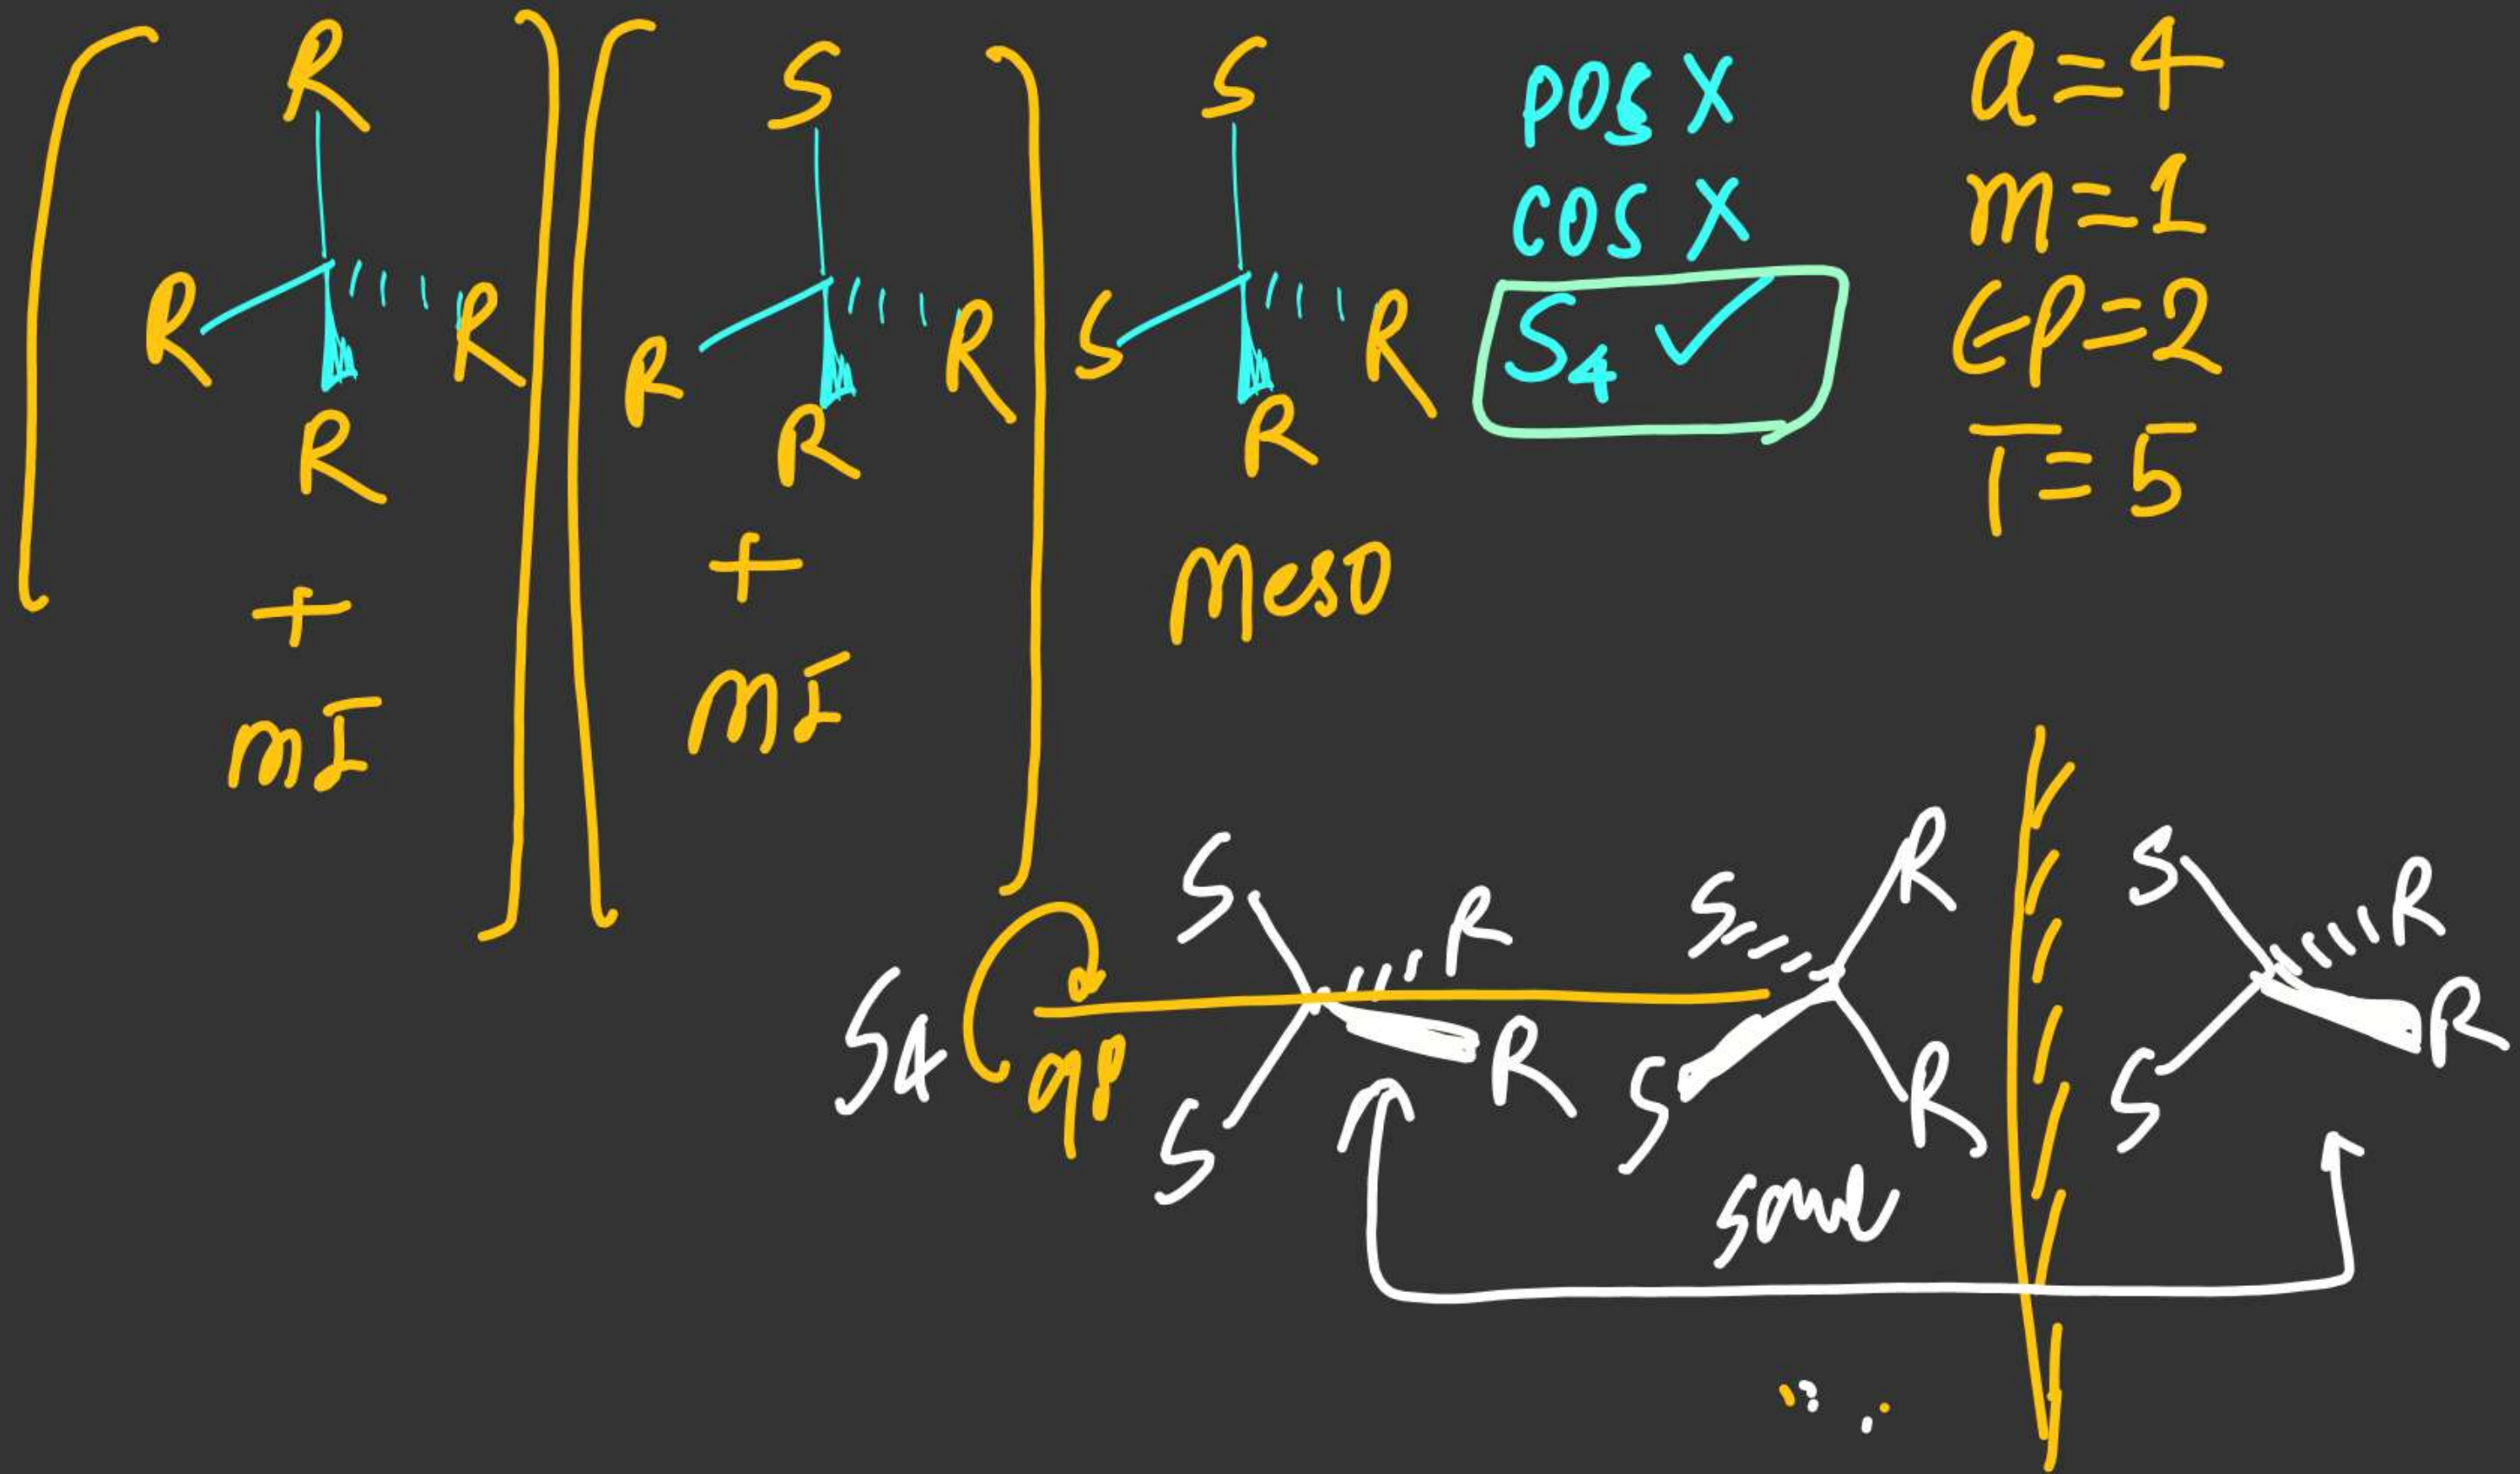 R
R
R
R
+
mI
S
R
R
R
+
mI
S
S
R
R
Meso
POS X
COS X
S4 ✓
a = 4
m = 1
EP = 2
T = 5
S4
90
S
R
R
S
S
R
S
R
same
S
R
R
S